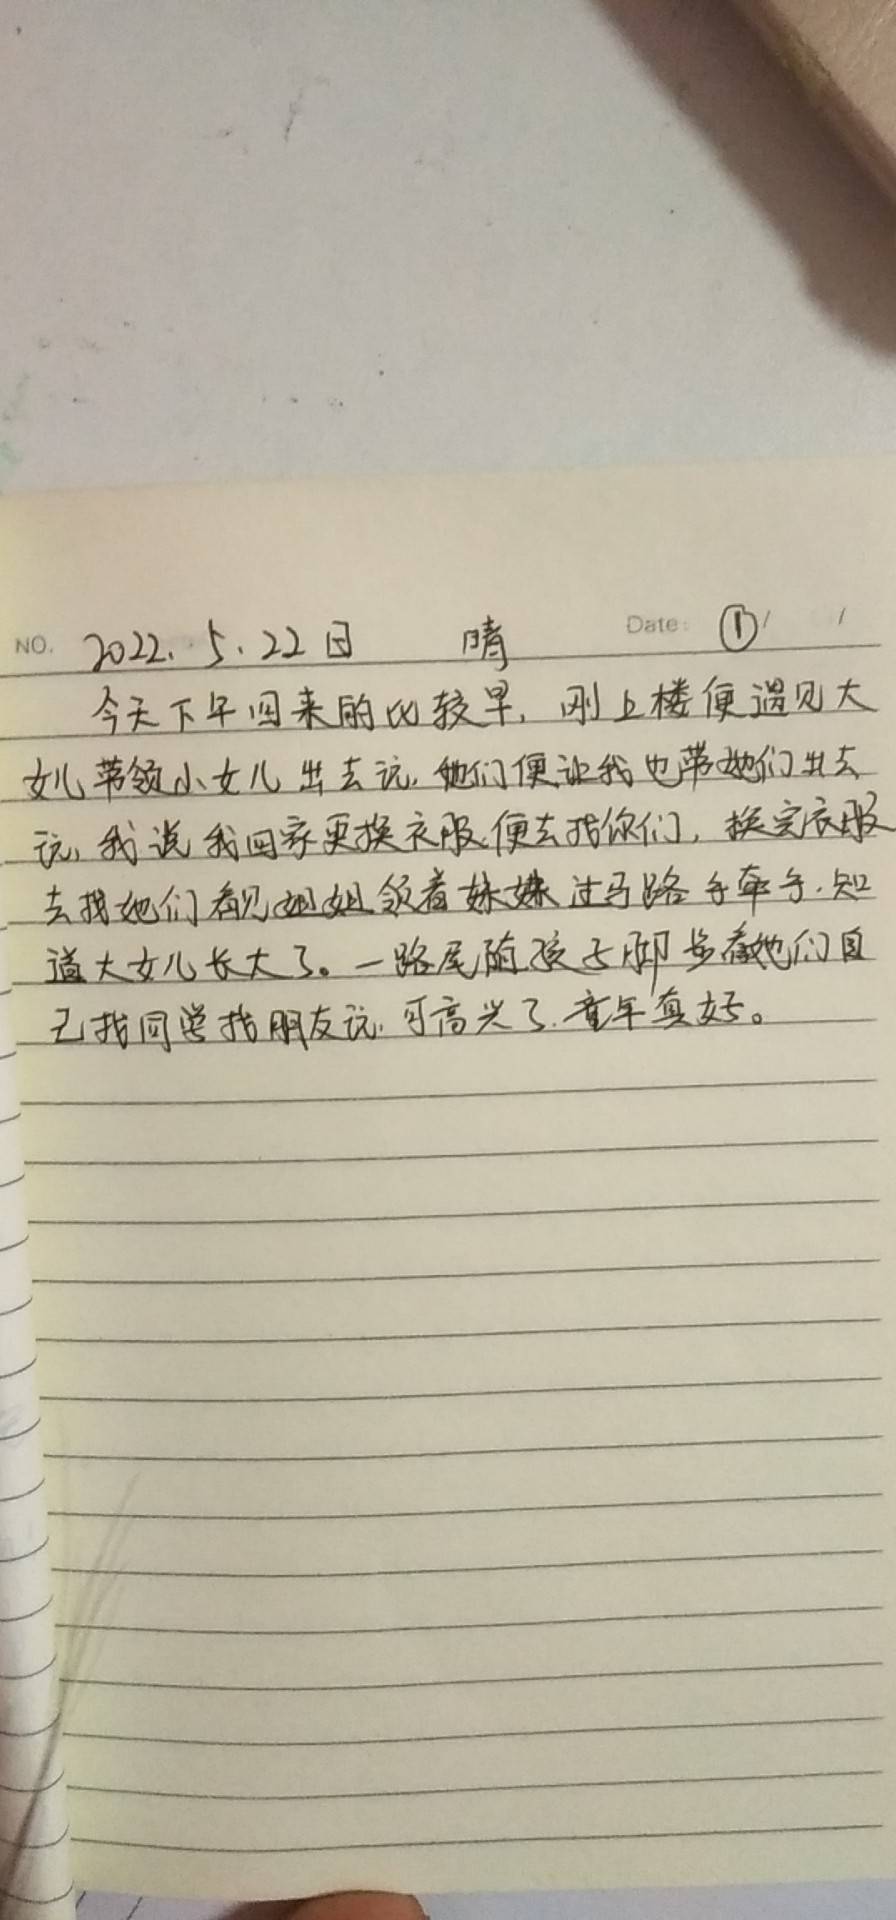 NO. 2022.5.22日 晴 Date: ① / /
今天下午回来的比较早，刚上楼便遇见大
女儿带领小女儿出去玩，她们便让我也带她们出去
玩，我说我回家更换衣服便去找你们，换完衣服
去找她们看见姐姐领着妹妹过马路手牵手，知
道大女儿长大了。一路尾随孩子脚步看她们自
己找同学找朋友玩，可高兴了，童年真好。